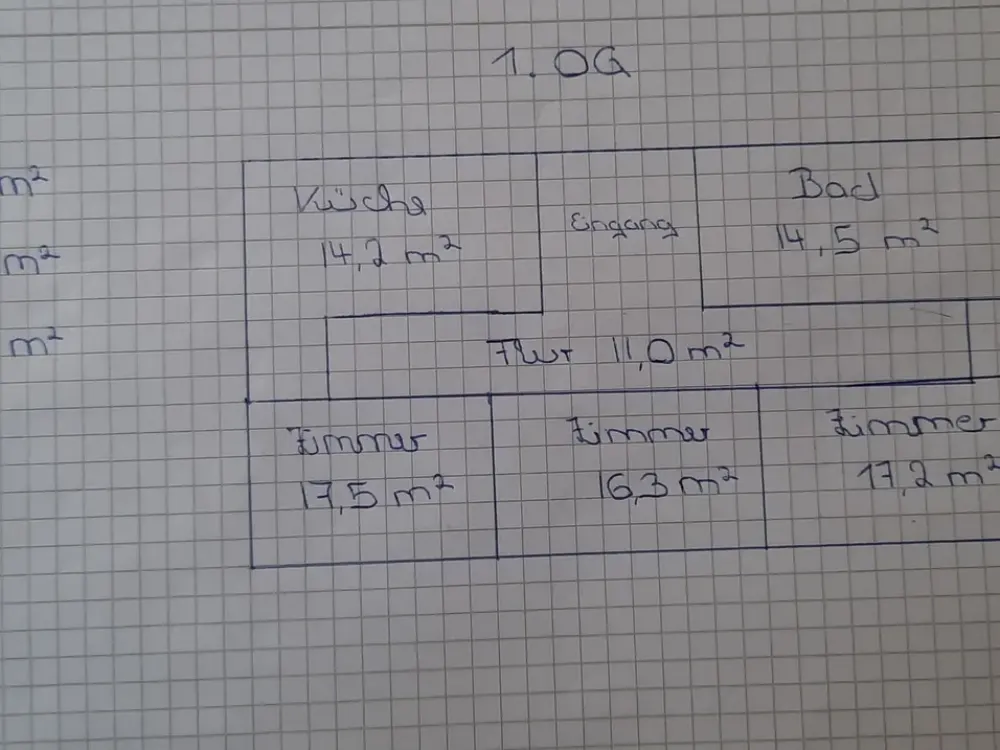 1. OG
m²
m²
m²
Küche
14,2 m²
Eingang
Bad
14,5 m²
Flur 11,0 m²
Zimmer
17,5 m²
Zimmer
16,3 m²
Zimmer
17,2 m²